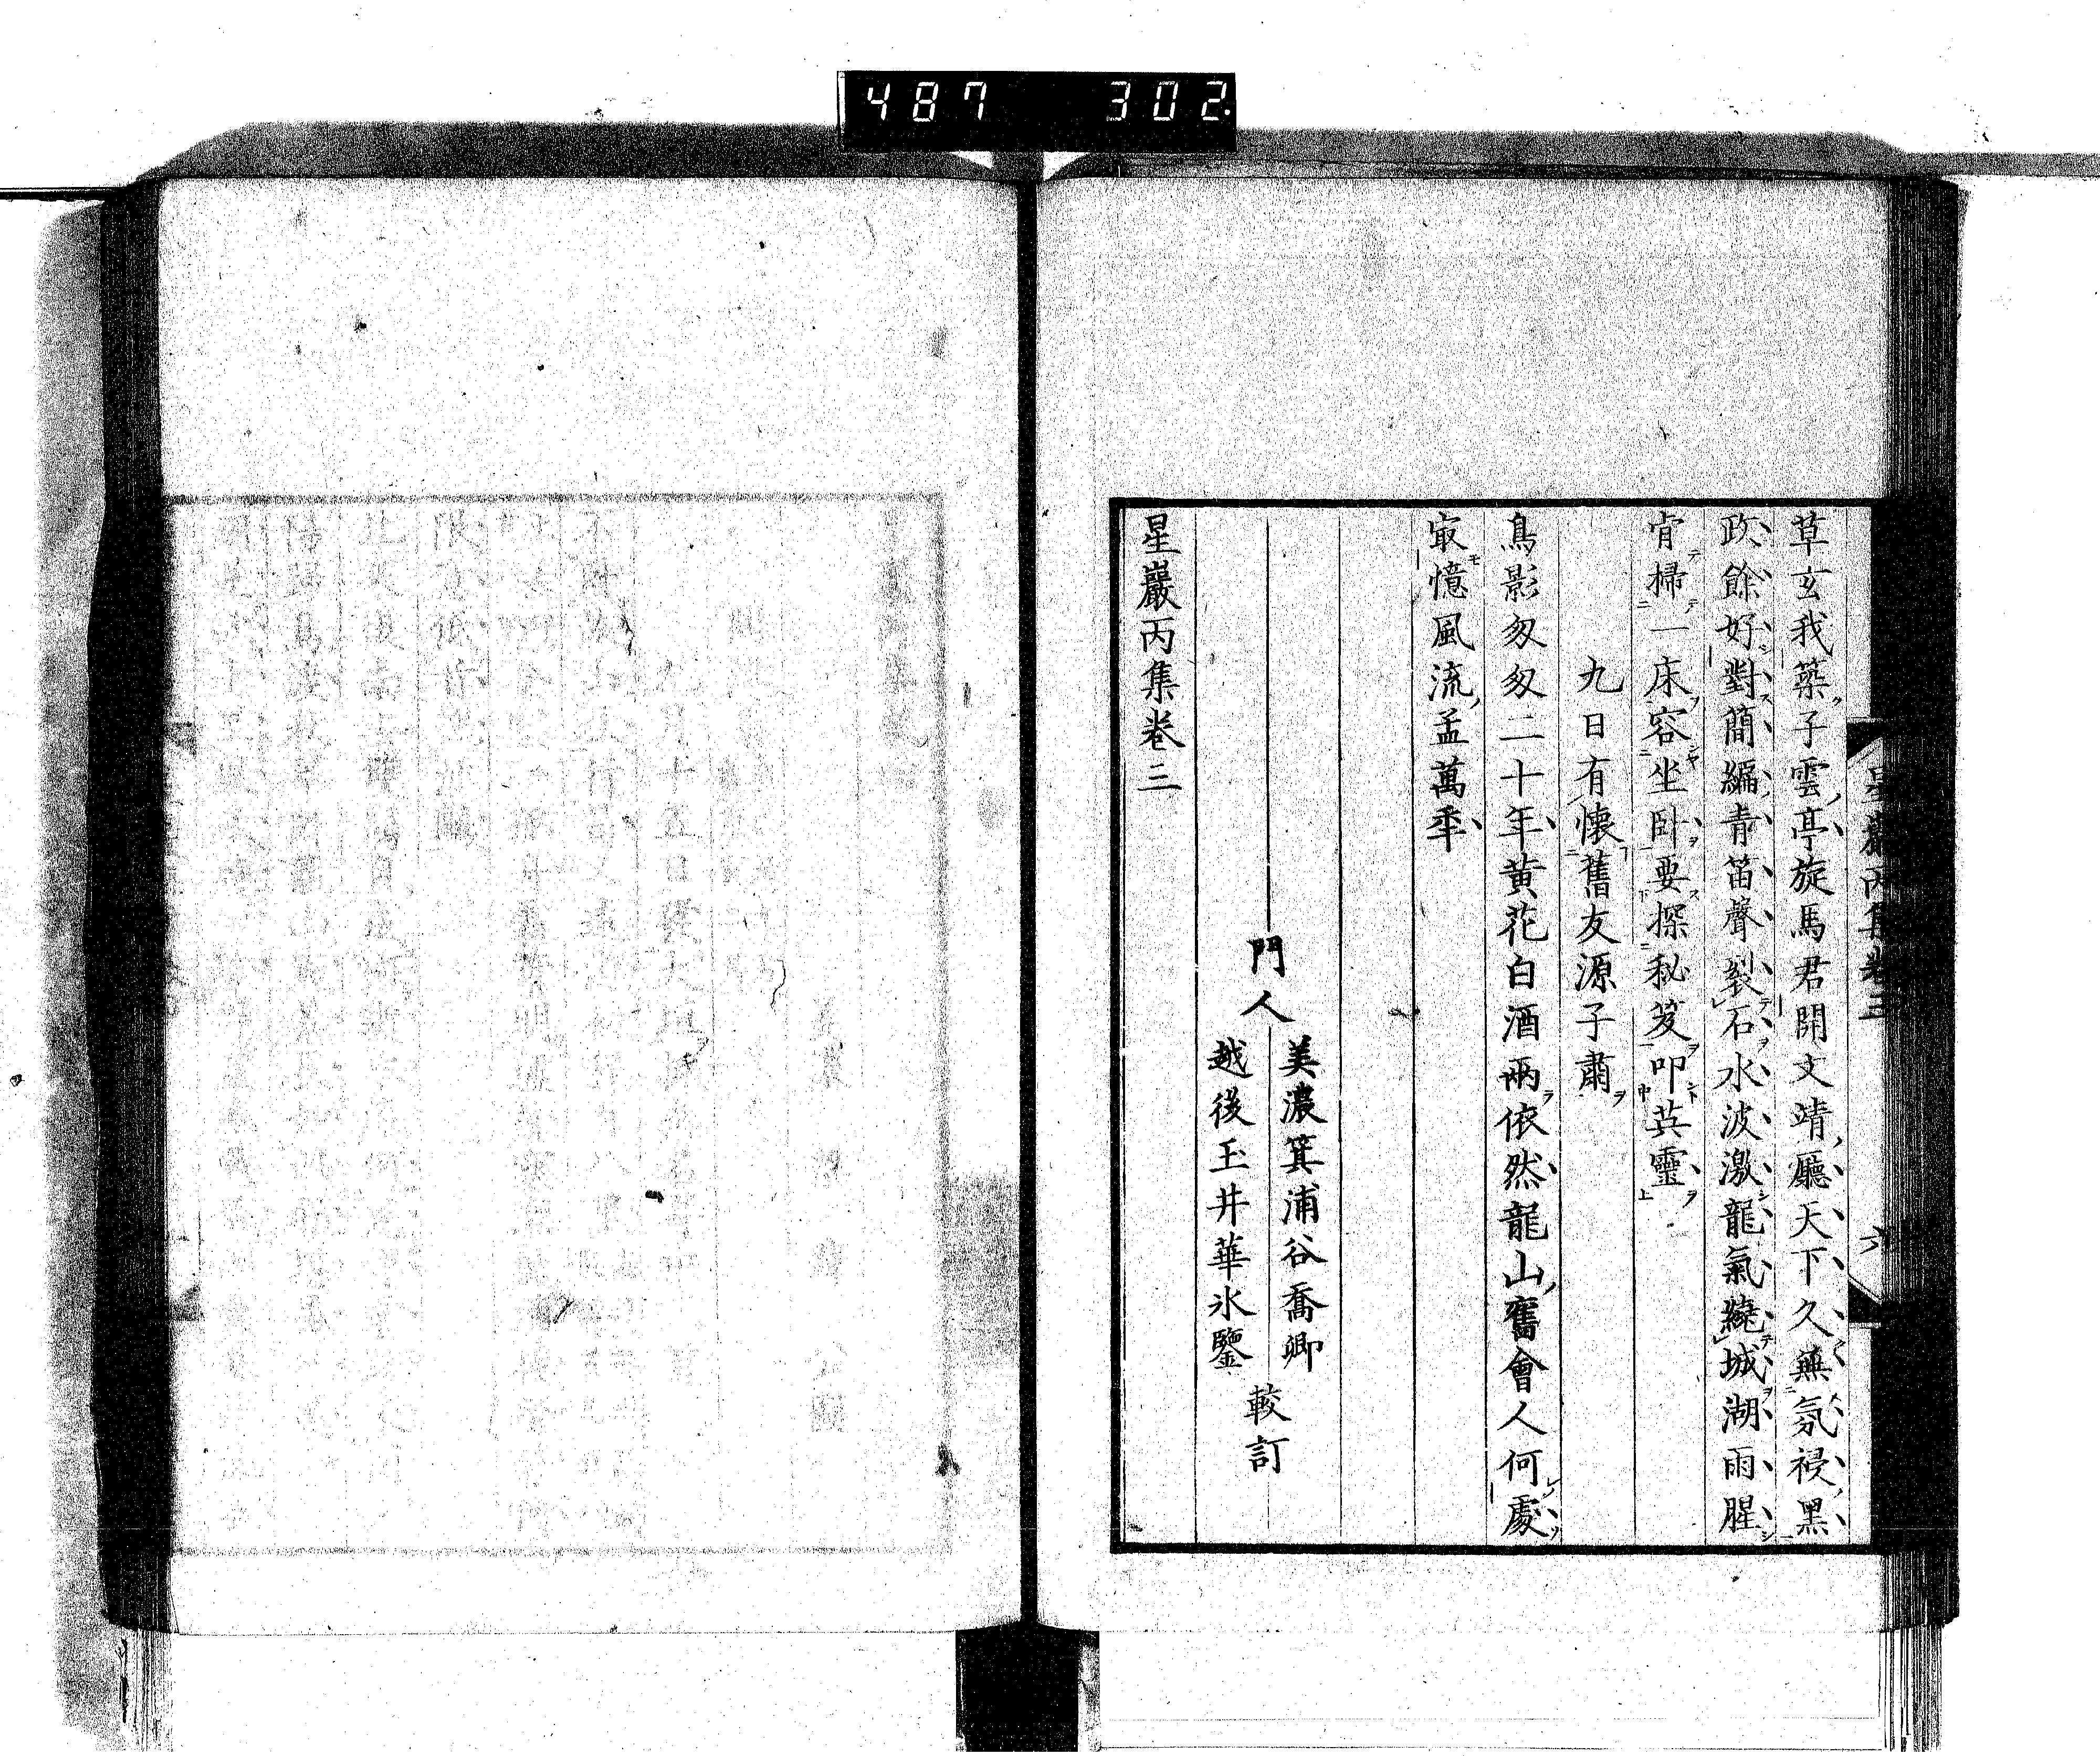 487 302
星巖丙集卷三 六
草玄我築子雲亭旋馬君開文靖廳天下久無氛祲黑
政餘好對簡編青笛聲裂石水波激龍氣繞城湖雨腥
肯掃一床容坐臥要探秘笈叩英靈
九日有懷舊友源子肅
鳥影匆匆二十年黄花白酒兩依然龍山舊會人何處
㝡憶風流孟萬秊
門人
美濃箕浦谷喬卿
越後玉井華氷鑒
較訂
星巖丙集卷三